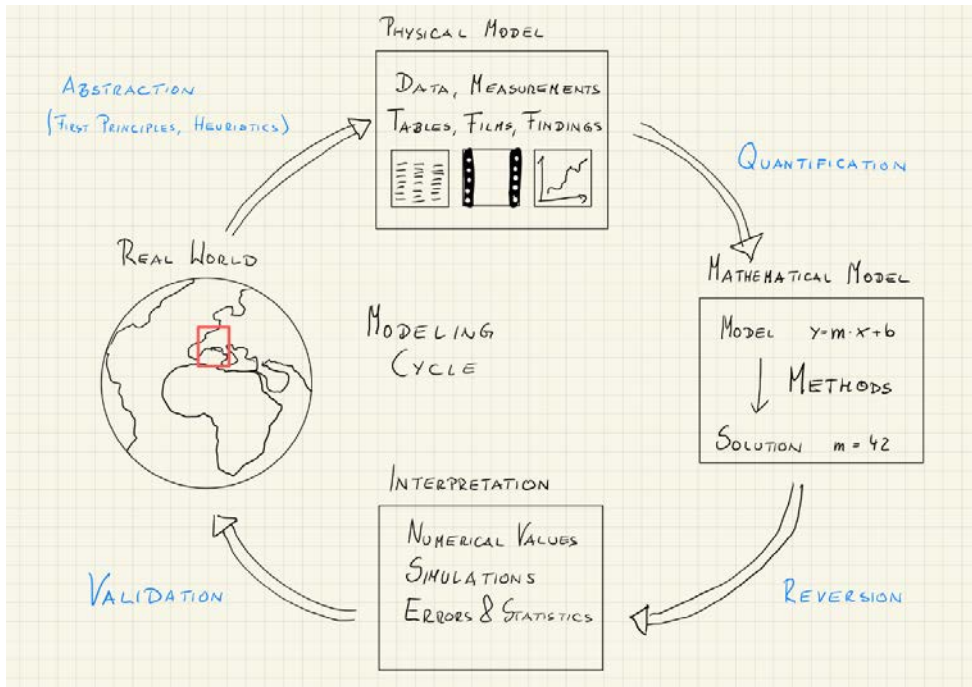 PHYSICAL MODEL
DATA, MEASUREMENTS
TABLES, FILMS, FINDINGS
ABSTRACTION
(FIRST PRINCIPLES, HEURISTICS)
QUANTIFICATION
REAL WORLD
MATHEMATICAL MODEL
MODEL y=m·x+b
METHODS
SOLUTION m = 42
MODELING
CYCLE
INTERPRETATION
NUMERICAL VALUES
SIMULATIONS
ERRORS & STATISTICS
VALIDATION
REVERSION